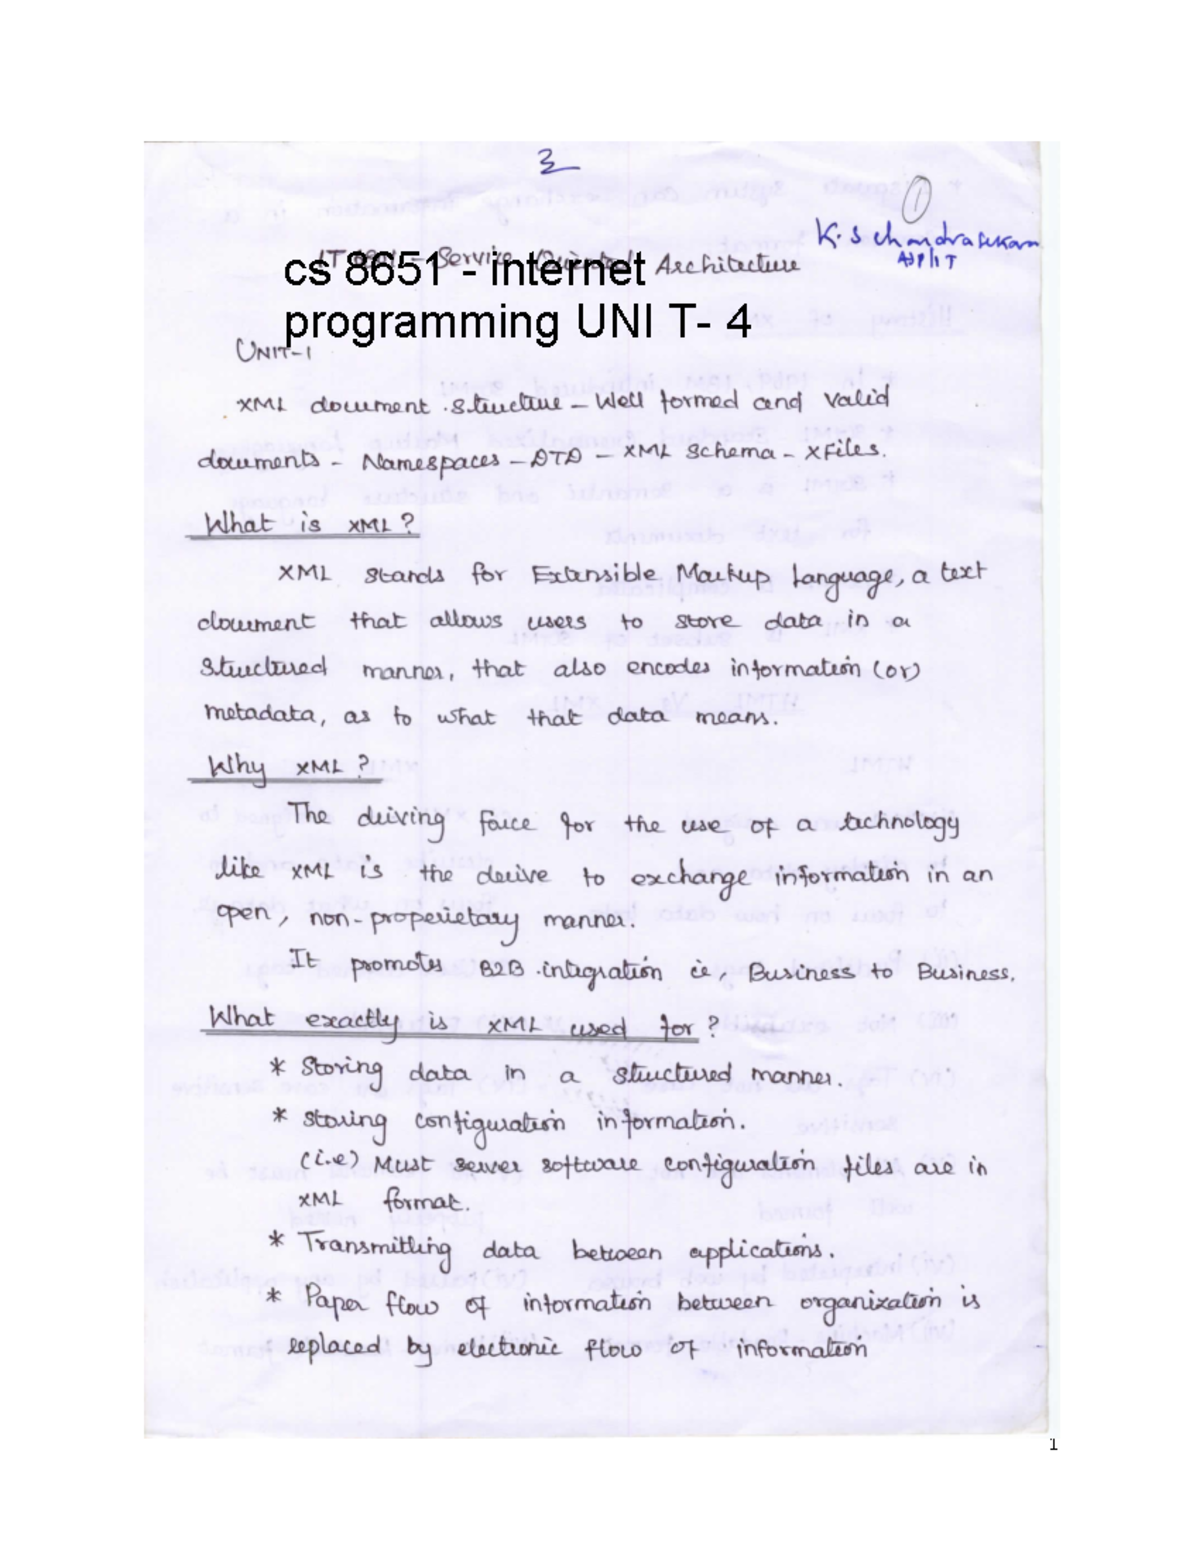 3
1
K.S chandrasekaran
AP/IT
Service Oriented Architecture
cs 8651 - internet
programming UNI T- 4
UNIT-1
XML document structure - Well formed and valid
documents - Namespaces - DTD - XML Schema - XFiles.
What is XML?
XML stands for Extensible Markup Language, a text
document that allows users to store data in a
structured manner, that also encodes information (or)
metadata, as to what that data means.
Why XML?
The driving force for the use of a technology
like XML is the derive to exchange information in an
open, non-properietary manner.
It promotes B2B integration ie, Business to Business.
What exactly is XML used for?
* Storing data in a structured manner.
* Storing configuration information.
(i.e) Must server software configuration files are in
XML format.
* Transmitting data between applications.
* Paper flow of information between organization is
replaced by electronic flow of information
1